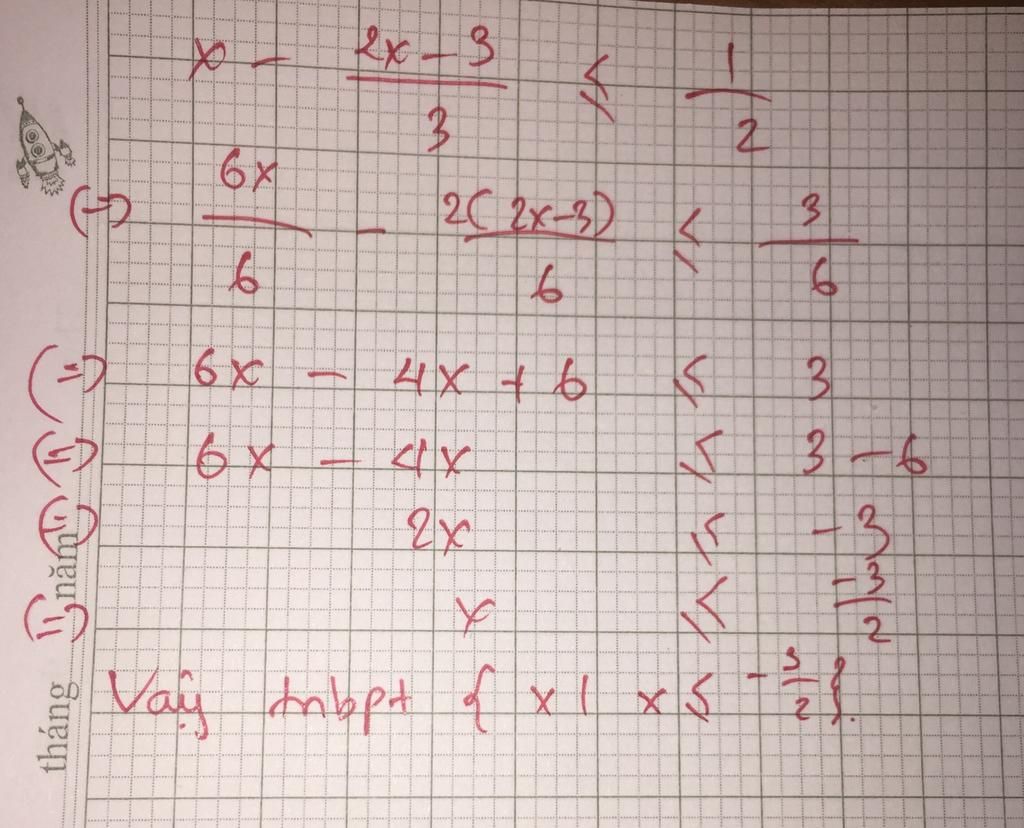 x - \frac{2x-3}{3} ≤ \frac{1}{2}
(=) \frac{6x}{6} - \frac{2(2x-3)}{6} ≤ \frac{3}{6}
(=) 6x - 4x + 6 ≤ 3
(=) 6x - 4x ≤ 3 - 6
(=) 2x ≤ -3
(=) x ≤ \frac{-3}{2}
Vậy tnbpt { x | x ≤ -\frac{3}{2} }.
tháng năm